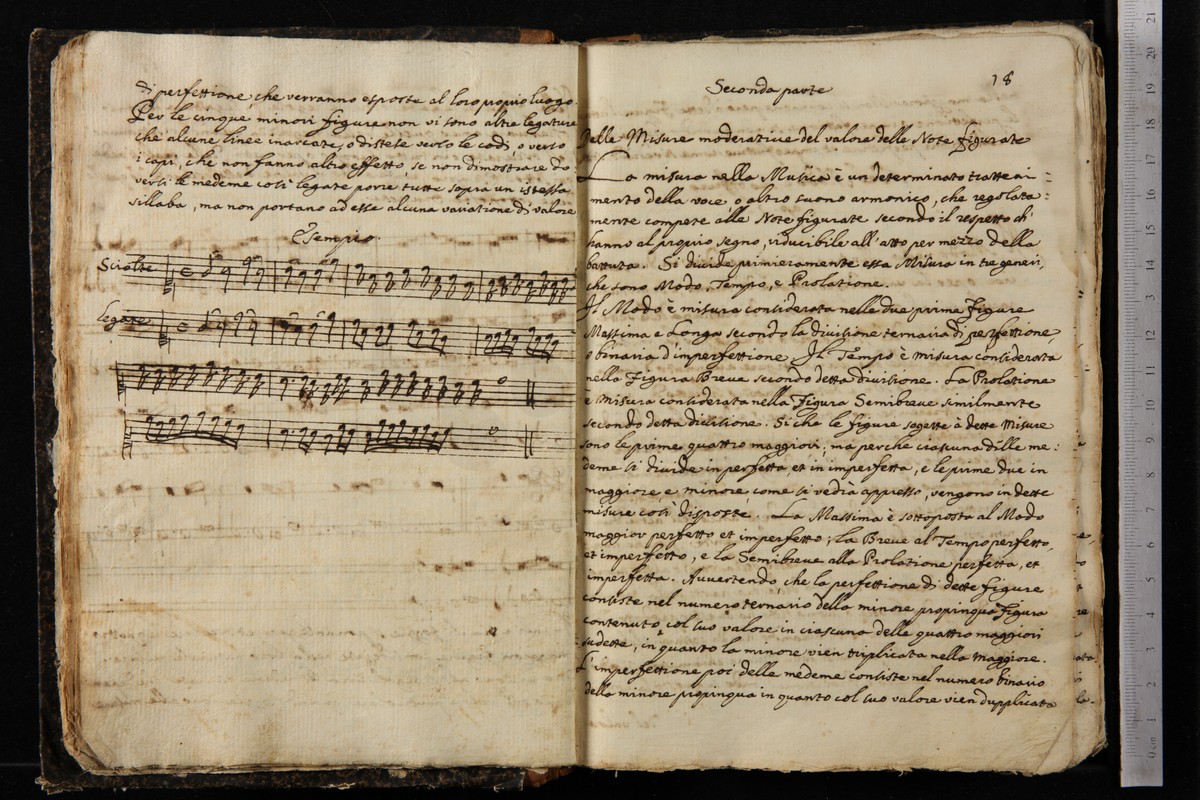 di perfettione che verranno esposte al loro proprio luogo.
Per le cinque minori figure non vi sono altre legature
che alcune linee inarcate, o distese verso le codi, o verso
i capi, che non fanno altro effetto, se non dimostrare do
versi le medeme così legate porre tutte sopra un istessa
sillaba, ma non portano ad esse alcuna variatione di valore
Esempio.
Sciolte
legate
Seconda parte
18
Delle Misure moderative del valore delle Note figurate
La misura nella Musica è un determinato trattea:
mento della voce, o altro suono armonico, che regolata:
mente compete alle Note figurate secondo il respetto ch'
hanno al proprio segno, riducibile all'atto per mezzo della
battuta. Si divide primieramente essa Misura in tre generi,
che sono Modo, Tempo, e Prolatione.
Il Modo è misura considerata nelle due prime Figure
Massima e Longa secondo la divisione ternaria di perfettione,
o binaria d'imperfettione. Il Tempo è misura considerata
nella Figura Breve secondo detta divisione. La Prolatione
è misura considerata nella Figura Semibreve similmente
secondo detta divisione. Si che le figure sogette à dette Misure
sono le prime quattro maggiori; ma perche ciascuna delle me:
deme si divide in perfetta, et in imperfetta, e le prime due in
maggiore, e minore, come si vedrà appresso, vengono in dette
misure così disposte. La Massima è sottoposta al Modo
maggior perfetto et imperfetto; la Breve al Tempo perfetto,
et imperfetto, e la Semibreve alla Prolatione perfetta, et
imperfetta. Avvertendo, che la perfettione di dette figure
consiste nel numero ternario della minore propinqua figura
contenuto col suo valore in ciascuna delle quattro maggiori
sudette, in quanto la minore vien triplicata nella maggiore.
L'imperfettione poi delle medeme consiste nel numero binario
della minore propinqua in quanto col suo valore vien dupplicata